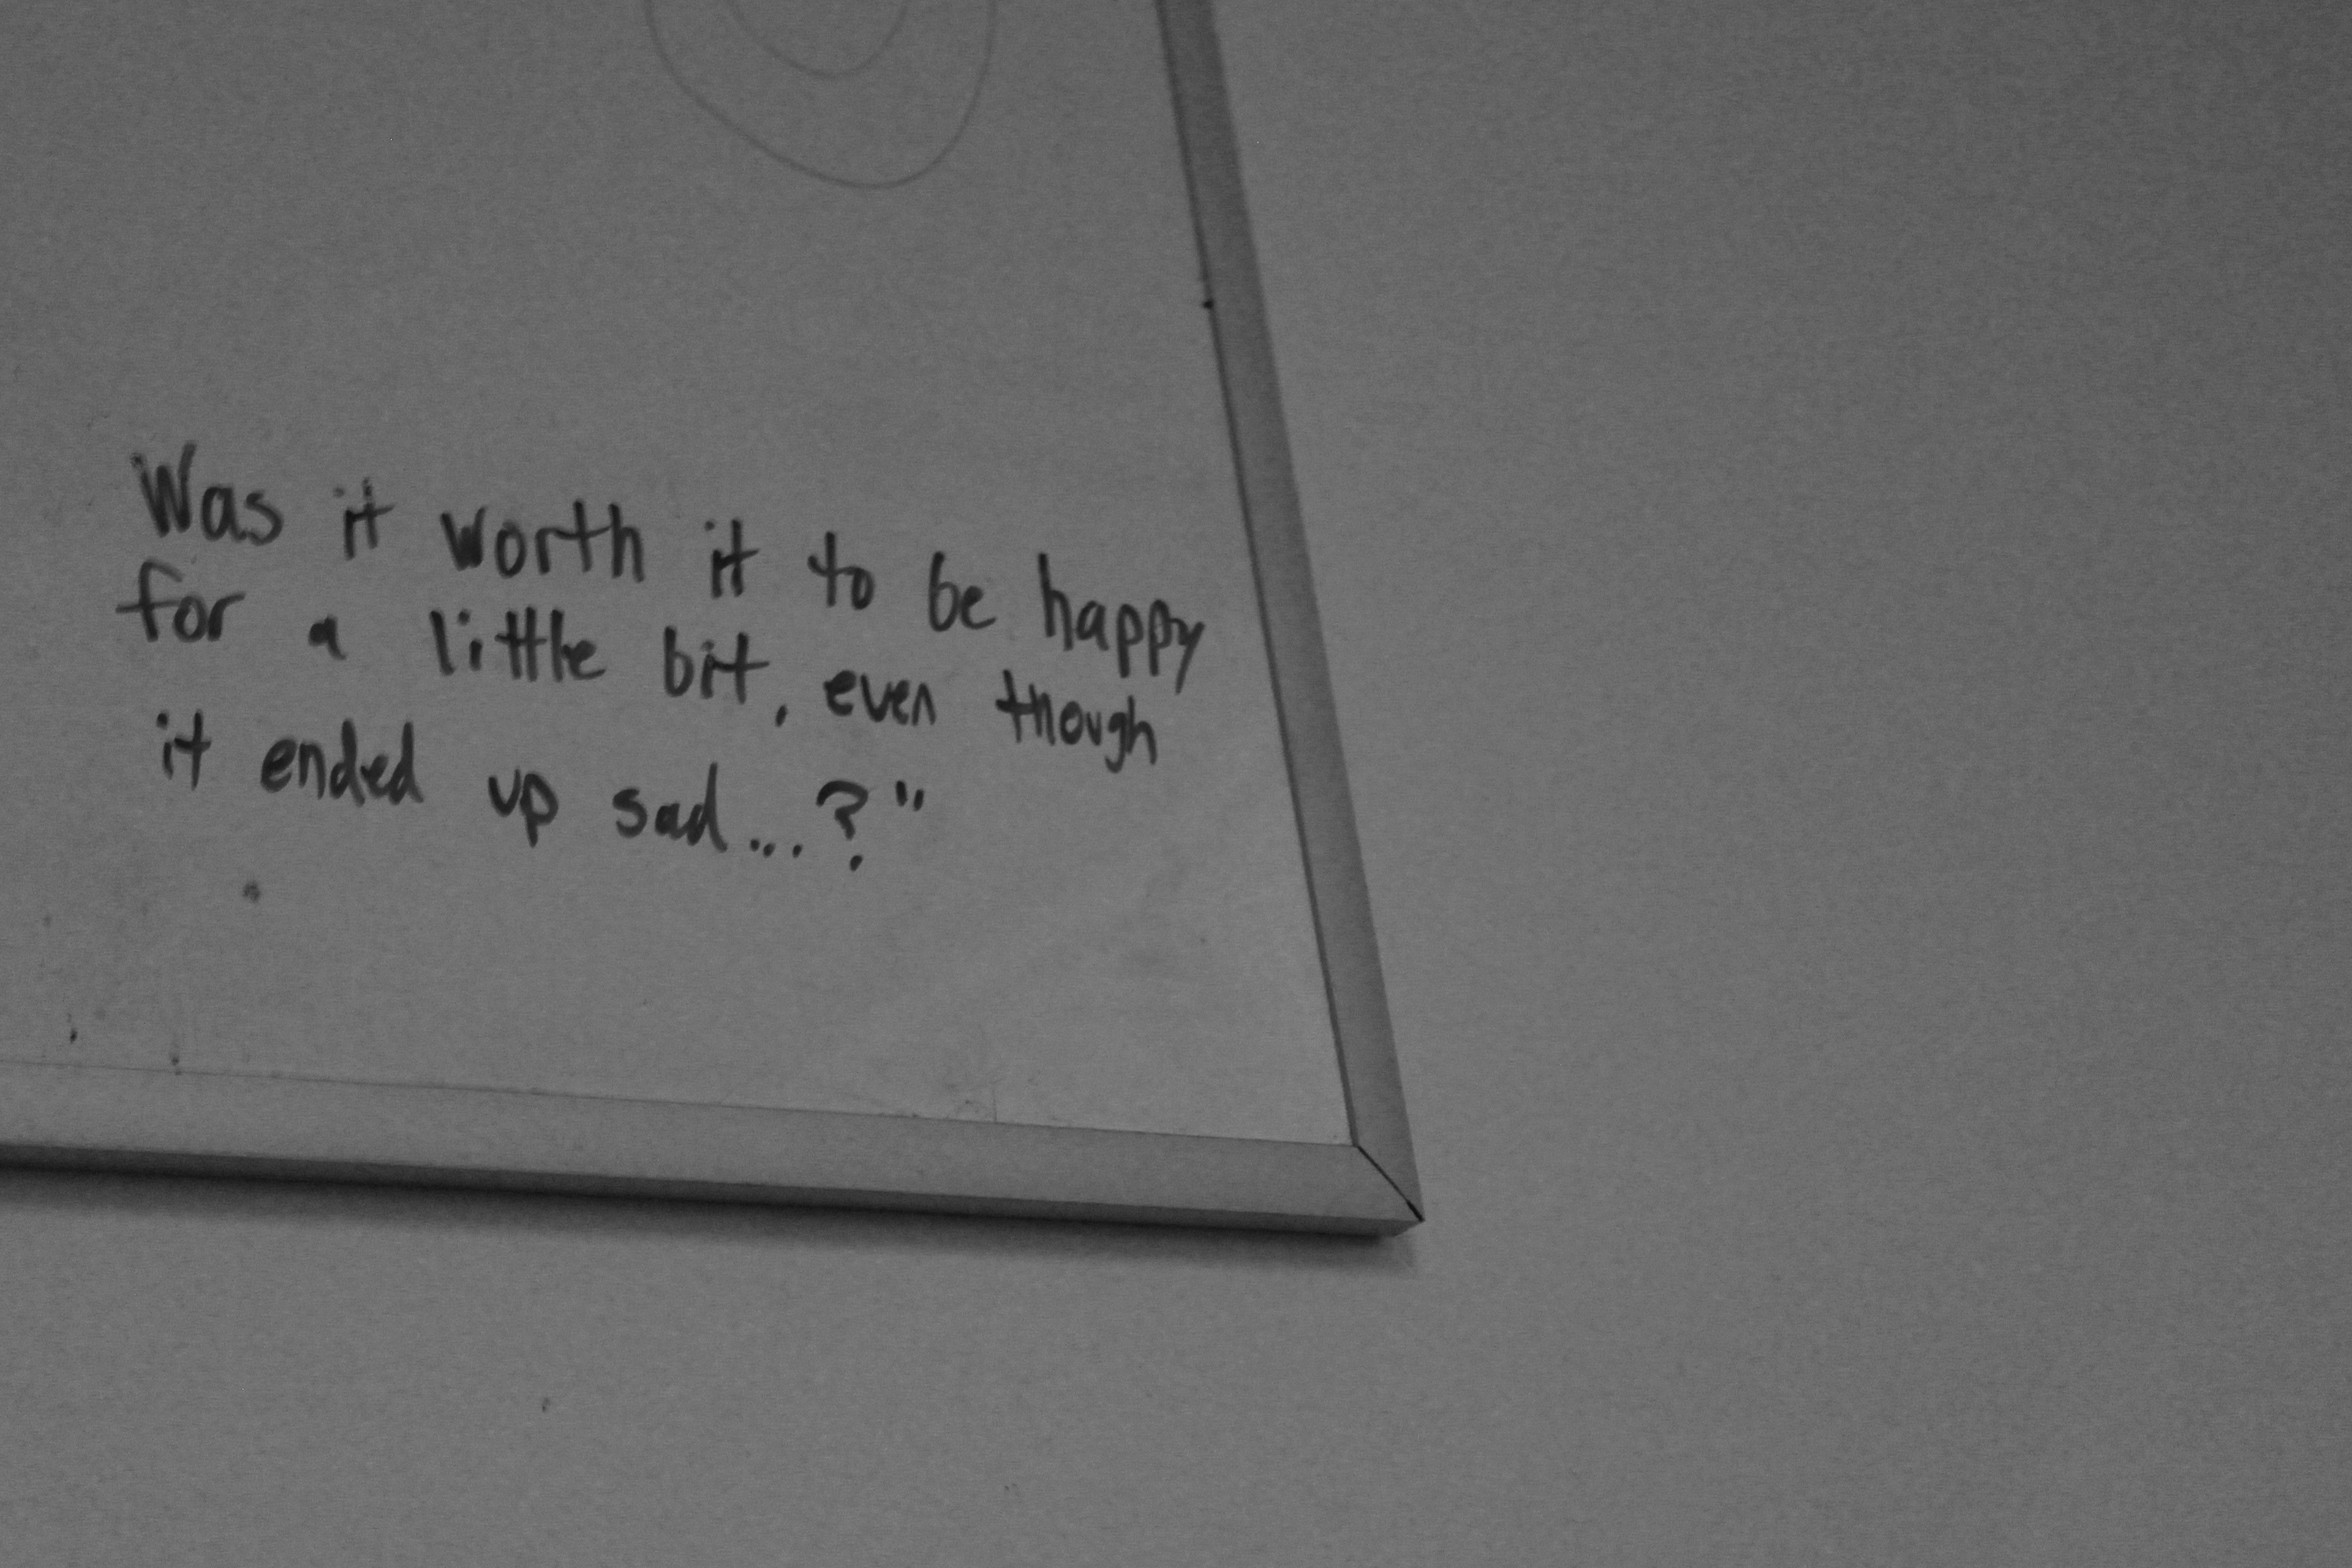 Was it worth it to be happy
for a little bit, even though
it ended up sad...?"